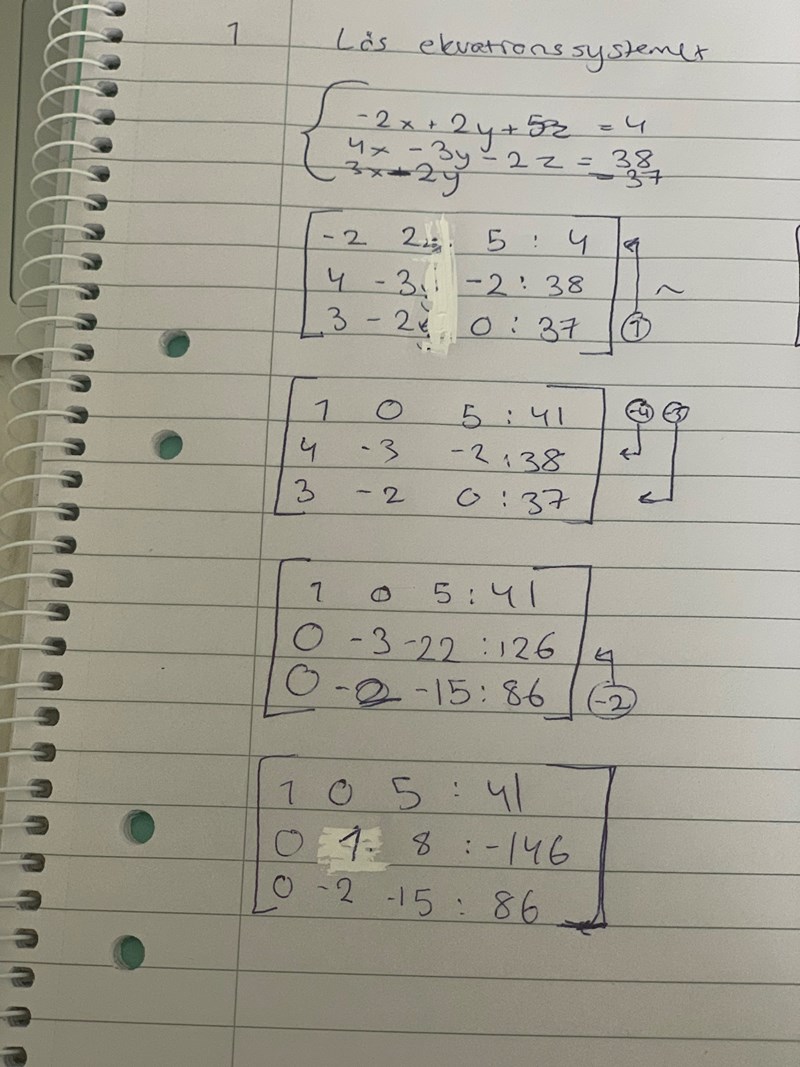 1 Lös ekvationssystemet
-2x + 2y + 5z = 4
4x - 3y - 2z = 38
3x - 2y = 37
-2 2 5 : 4
4 -3 -2 : 38 ~
3 -2 0 : 37 1
1 0 5 : 41 -4 -3
4 -3 -2 : 38
3 -2 0 : 37
1 0 5 : 41
0 -3 -22 : 126
0 -2 -15 : 86 -2
1 0 5 : 41
0 1 8 : -146
0 -2 -15 : 86